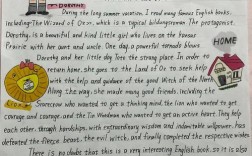 DOROTHY
During the long summer vacation, I read many famous English books,
including "The Wizard of Oz", which is a typical bildungsroman. The protagonist,
Dorothy, is a beautiful and kind little girl who lives on the Kansas
Prairie with her aunt and uncle. One day, a powerful tornado blows
Dorothy and her little dog Toto to the strange place. In order to
return home, she goes to the Land of Oz to seek help
with the help and guidance of the good Witch of the North.
Along the way, she made many good friends, including the
Scarecrow who wanted to get a thinking mind, the lion who wanted to get
courage and courage, and the Tin Woodman who wanted to get an active heart. They help
each other, through hardships, with extraordinary wisdom and indomitable willpower, has
defeated the fierce beast, the evil witch, and finally completed the respective wish.
There is no doubt that this is a very interesting English book, so it is also
HOME
LION